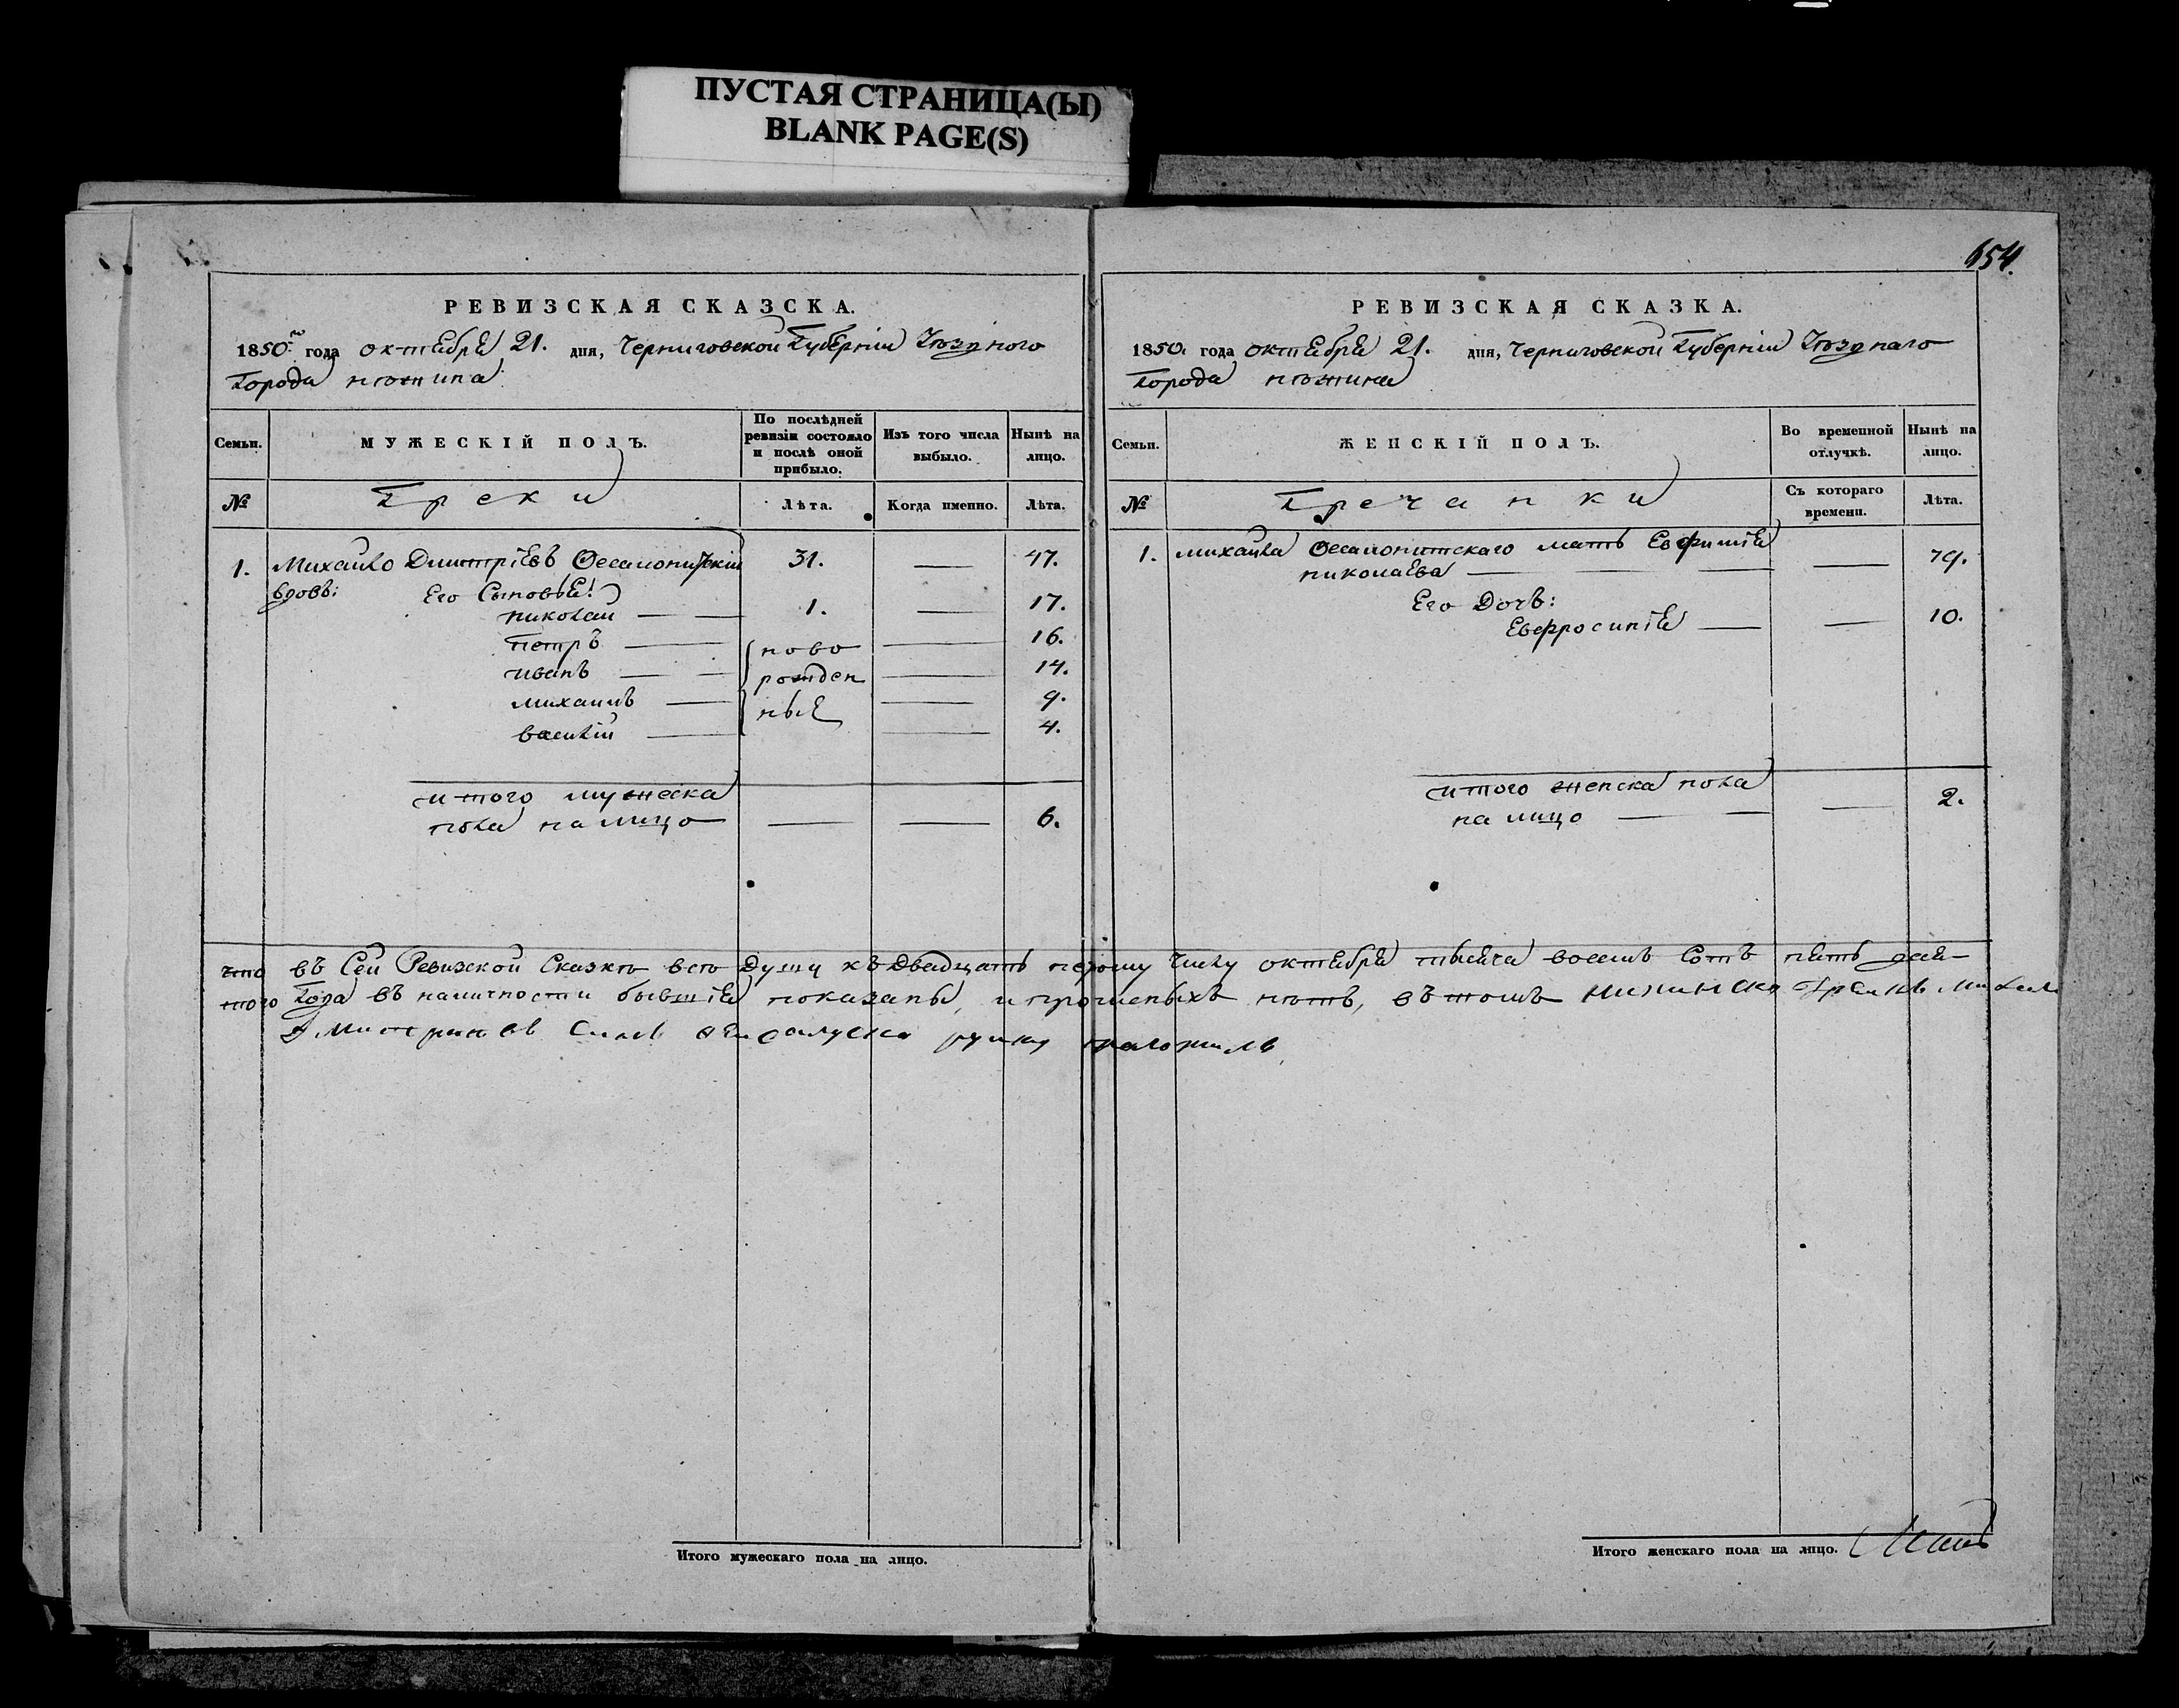 ПУСТАЯ СТРАНИЦА(Ы)
BLANK PAGE(S)
РЕВИЗСКАЯ СКАЗСКА.
1850го года октября 21. дня, Черниговской Губернiи Уѣздного
Города нѣжина
Семьи.
МУЖЕСКIЙ ПОЛЪ.
По послѣдней ревизiи состояло и послѣ оной прибыло.
Изъ того числа выбыло.
Нынѣ на лицо.
№
Греки
Лѣта.
Когда именно.
Лѣта.
1. Михайло Димитрiевъ Ѳесалонитскiй 31. — 47.
вдовъ: Его Сыновья:
николай — 1. — 17.
петръ — ново — 16.
иванъ — рожден — 14.
михаилъ — ныя — 9.
василiй — 4.
итого мужеска
пола на лицо — — 6.
654.
РЕВИЗСКАЯ СКАЗКА.
1850. года октября 21. дня, Черниговской Губернiи Уѣзднаго
Города нѣжина
Семьи.
ЖЕНСКIЙ ПОЛЪ.
Во временной отлучкѣ.
Нынѣ на лицо.
№
Гречанки
Съ котораго времени.
Лѣта.
1. михайла Ѳесалонитскаго мать Евфимiя
николаева — — 79.
Его Дочь:
Евфросинiя — — 10.
итого женска пола
на лицо — — 2.
что въ Сей Ревизской Сказкѣ всѣ Души къ Двадцать первому Числу октября тысяча восемь Сотъ пять деся-
того Года въ наличности бывшiя показаны, и прописныхъ нѣтъ, въ томъ
руку приложилъ
Итого мужескаго пола на лицо.
Итого женскаго пола на лицо.